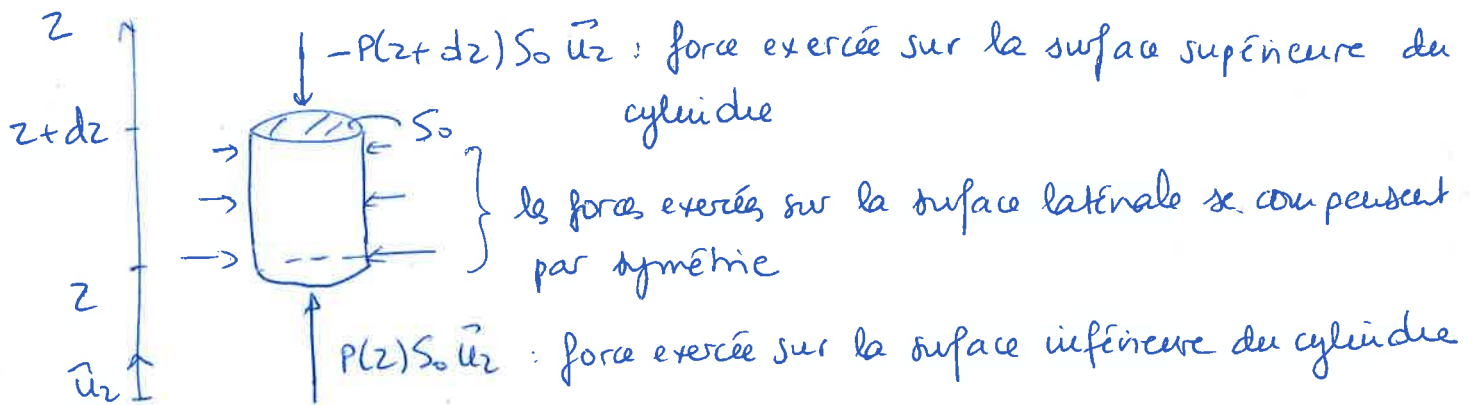 z
-P(z+dz) S₀ u⃗z : force exercée sur la surface supérieure du
cylindre
z+dz
S₀
les forces exercées sur la surface latérale se compensent
par symétrie
z
P(z) S₀ u⃗z : force exercée sur la surface inférieure du cylindre
u⃗z